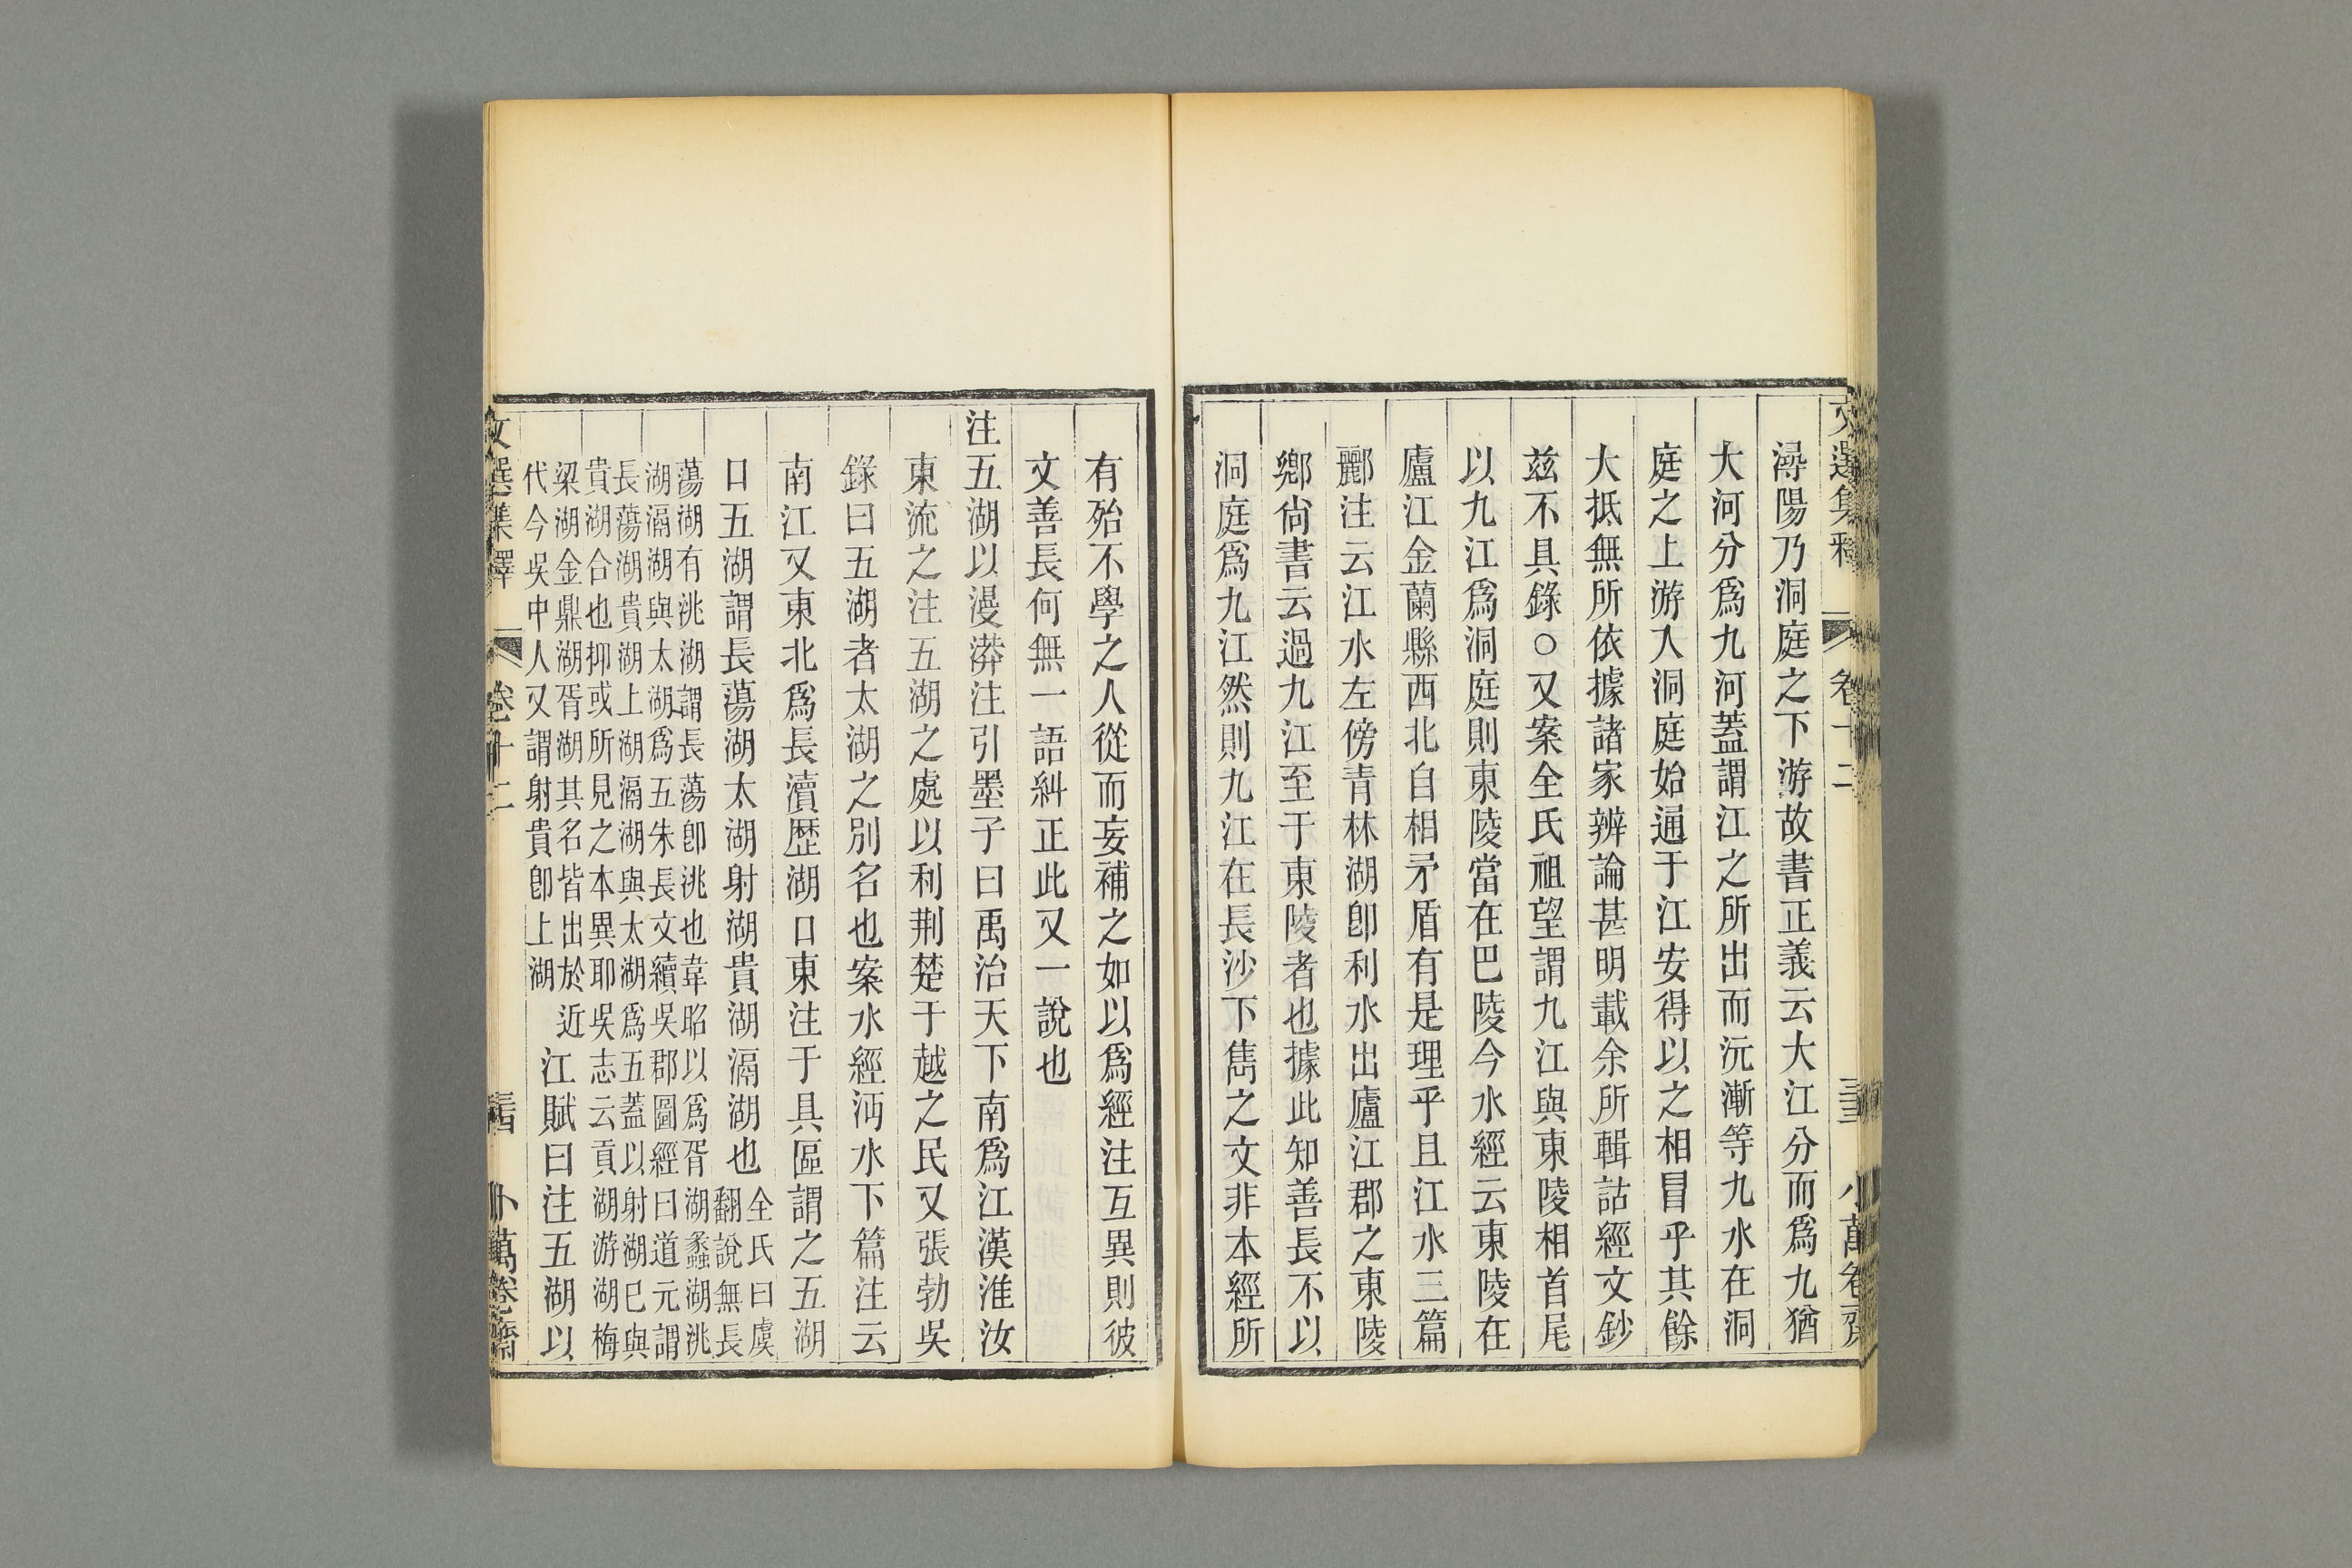 文選集釋 卷十二 三三 小萬卷齋
潯陽乃洞庭之下游故書正義云大江分而爲九猶
大河分爲九河蓋謂江之所出而沅漸等九水在洞
庭之上游入洞庭始通于江安得以之相冒乎其餘
大抵無所依據諸家辨論甚明載余所輯詁經文鈔
茲不具錄○又案全氏祖望謂九江與東陵相首尾
以九江爲洞庭則東陵當在巴陵今水經云東陵在
廬江金蘭縣西北自相矛盾有是理乎且江水三篇
酈注云江水左傍青林湖卽利水出廬江郡之東陵
鄉尙書云過九江至于東陵者也據此知善長不以
洞庭爲九江然則九江在長沙下雋之文非本經所
有殆不學之人從而妄補之如以爲經注互異則彼
文善長何無一語糾正此又一說也
注五湖以漫漭注引墨子曰禹治天下南爲江漢淮汝
東流之注五湖之處以利荆楚于越之民又張勃吳
錄曰五湖者太湖之別名也案水經沔水下篇注云
南江又東北爲長瀆歷湖口東注于具區謂之五湖
口五湖謂長蕩湖太湖射湖貴湖滆湖也
全氏曰虞
翻說無長
蕩湖有洮湖謂長蕩卽洮也韋昭以爲胥湖蠡湖洮
湖滆湖與太湖爲五朱長文續吳郡圖經曰道元謂
長蕩湖貴湖上湖滆湖與太湖爲五蓋以射湖已與
貴湖合也抑或所見之本異耶吳志云貢湖游湖梅
梁湖金鼎湖胥湖其名皆出於近
代今吳中人又謂射貴卽上湖
江賦曰注五湖以
文選集釋 卷十二 三四 小萬卷齋